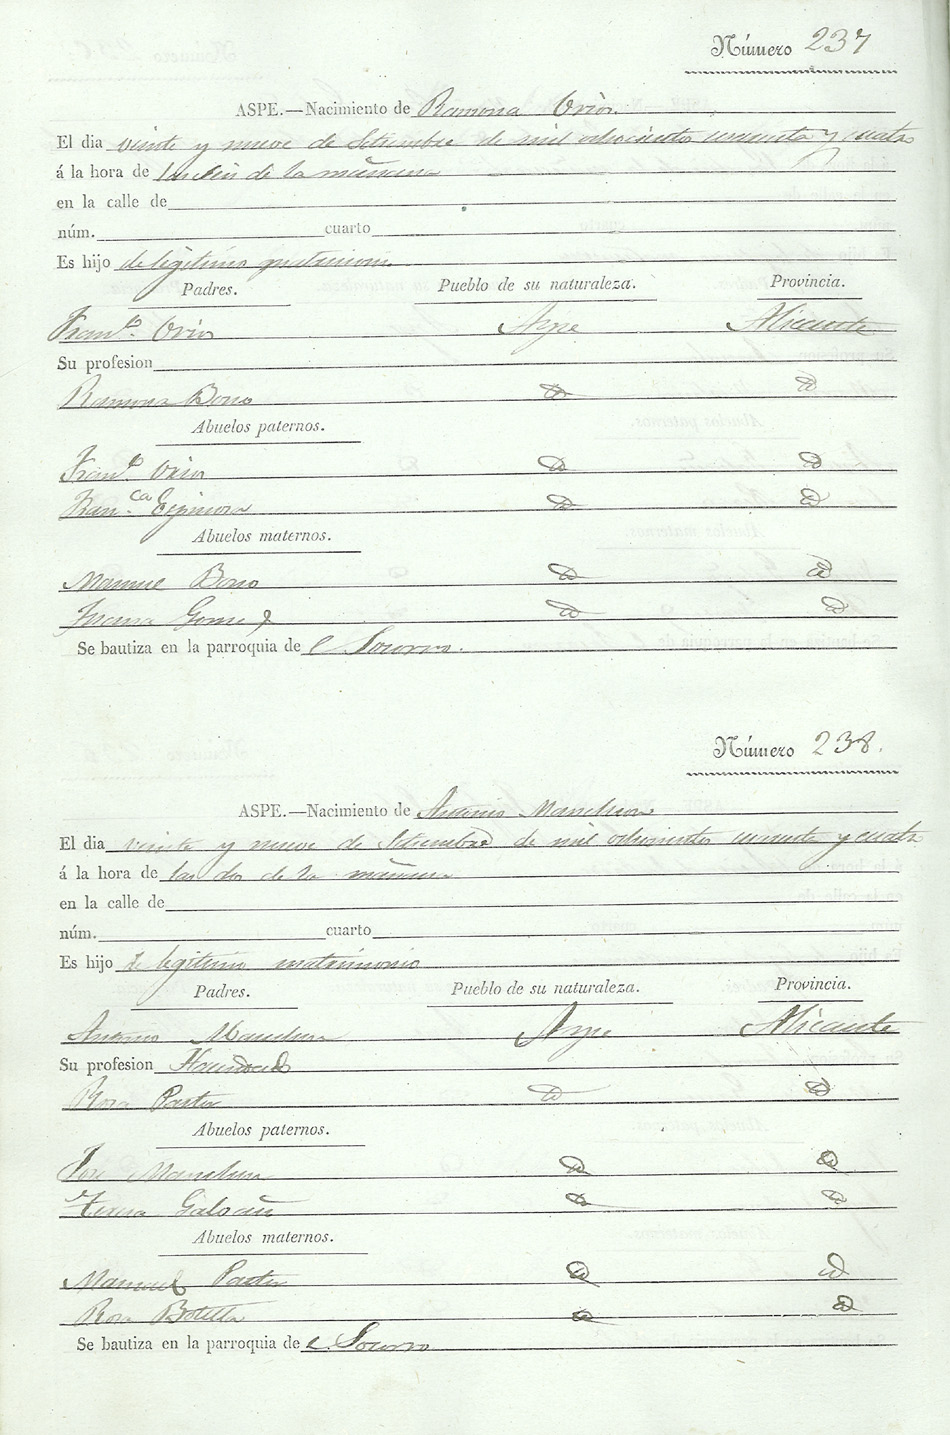 Número 237
ASPE.—Nacimiento de Ramona
El dia veinte y nueve de Setiembre de mil ochocientos cincuenta y cuatro
á la hora de las seis de la mañana
en la calle de
núm. cuarto
Es hijo de legitimo matrimonio
Padres. Pueblo de su naturaleza. Provincia.
Fran.co Aspe Alicante
Su profesion
Ramona
Abuelos paternos.
Fran.co
Fran.ca Espinosa
Abuelos maternos.
Manuel
Juana Gomez
Se bautiza en la parroquia de l Socorro.
Número 238.
ASPE.—Nacimiento de Antonio
El dia veinte y nueve de Setiembre de mil ochocientos cincuenta y cuatro
á la hora de las dos de la mañana
en la calle de
núm. cuarto
Es hijo de legitimo matrimonio
Padres. Pueblo de su naturaleza. Provincia.
Antonio Aspe Alicante
Su profesion
Rosa Pastor
Abuelos paternos.
José
Teresa Galvañ
Abuelos maternos.
Manuel Pastor
Rosa Botella
Se bautiza en la parroquia de l Socorro